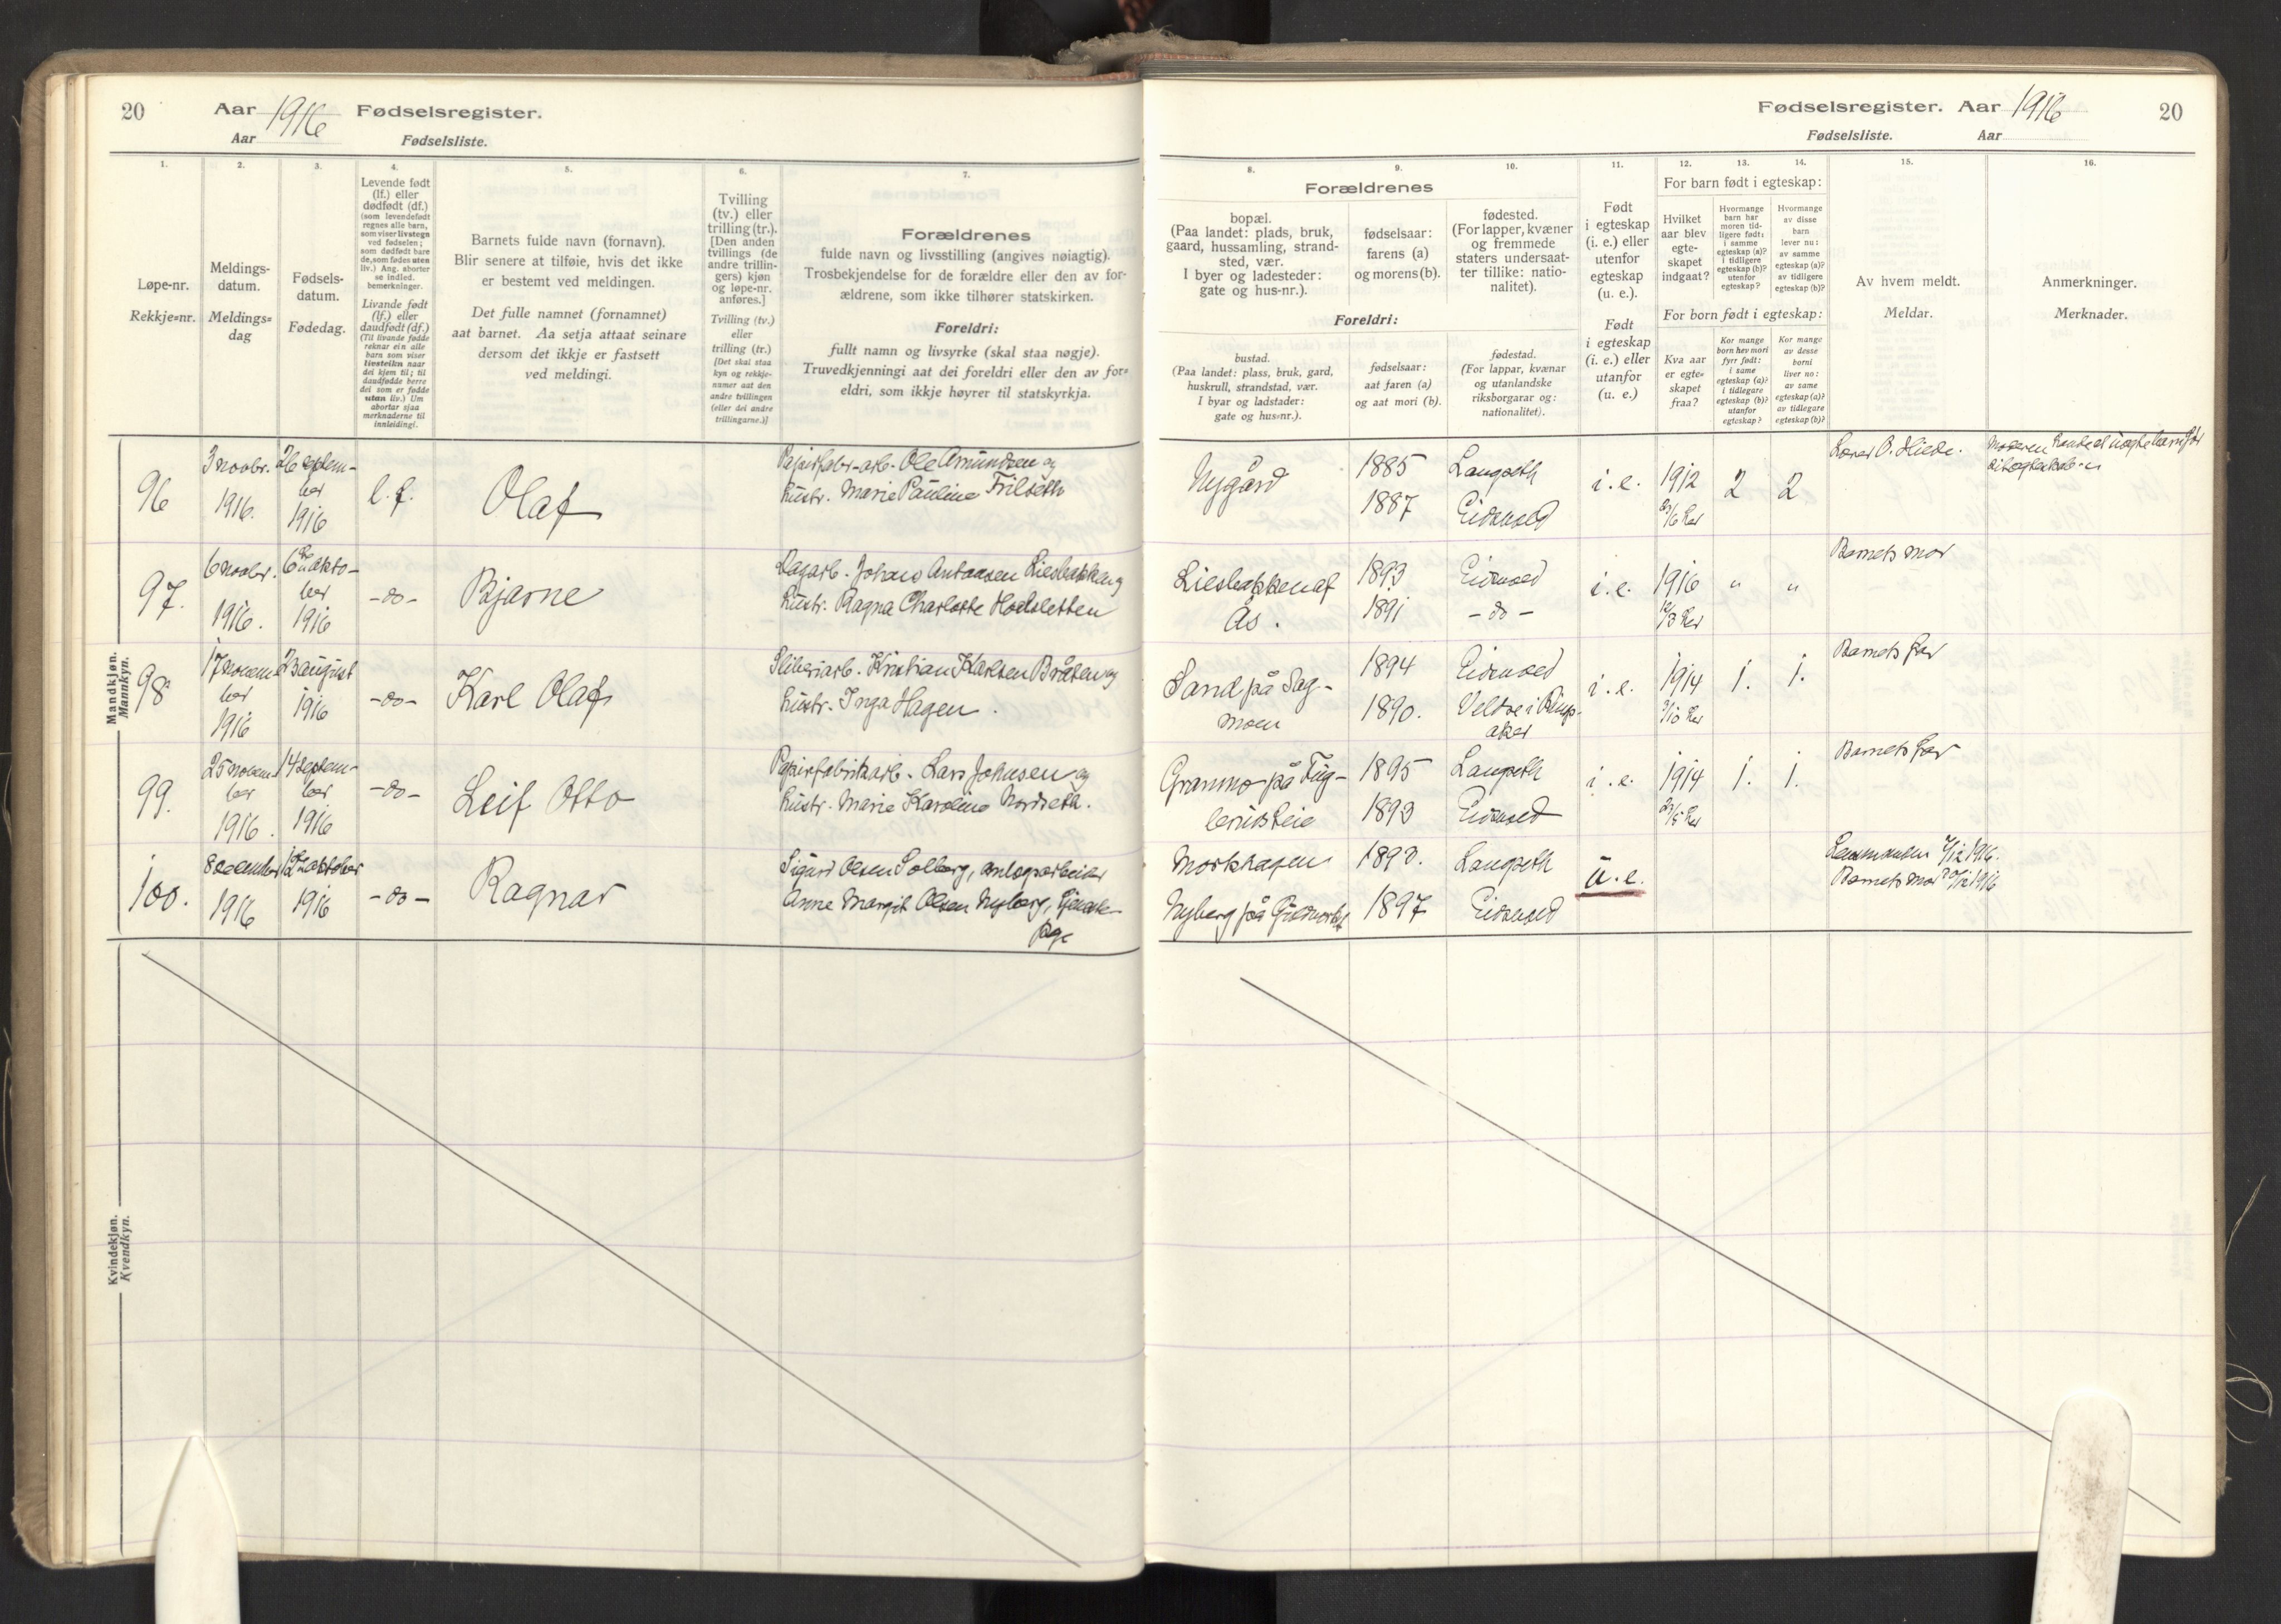 20
Aar 1916 Fødselsregister.
Aar Fødselsliste.
1.
2.
3.
4.
5.
6.
7.
Løpe-nr.
Rekkje=nr.
Meldings-
datum.
Meldings=
dag
Fødsels-
datum.
Fødedag.
Levende født
(lf.) eller
dødfødt (df.)
(som levendefødt
regnes alle barn,
som viser livstegn
ved fødselen;
som dødfødt bare
de, som fødes uten
liv.) Ang. aborter
se indled.
bemerkninger.
Livande født
(lf.) eller
daudfødt (df.)
(Til livande fødde
reknar ein alle
barn som viser
livsteikn naar
dei kjem til; til
daudfødde berre
dei som er fødde
utan liv.) Um
abortar sjaa
merknaderne til
innleidingi.
Barnets fulde navn (fornavn).
Blir senere at tilføie, hvis det ikke
er bestemt ved meldingen.
Det fulle namnet (fornamnet)
aat barnet. Aa setja attaat seinare
dersom det ikkje er fastsett
ved meldingi.
Tvilling
(tv.) eller
trilling (tr.).
[Den anden
tvillings (de
andre trillin-
gers) kjøn
og løpe-nr.
anføres.]
Tvilling (tv.)
eller
trilling (tr.)
[Det skal staa
kyn og rekkje-
numer aat den
andre tvillingen
(eller dei andre
trillingarne.)]
Forældrenes
fulde navn og livsstilling (angives nøiagtig).
Trosbekjendelse for de forældre eller den av for-
ældrene, som ikke tilhører statskirken.
Foreldri:
fullt namn og livsyrke (skal staa nøgje).
Truvedkjenningi aat dei foreldri eller den av for=
eldri, som ikkje høyrer til statskyrkja.
Mandkjøn.
Mannkyn.
96
3 novbr.
1916.
26 septem-
ber
1916
l. f.
Olaf
Papirfabr-arb. Ole Amundsen og
hustr. Marie Pauline Trilseth
97.
6 novbr.
1916.
6 okto-
ber
1916
-do-
Bjarne
Dagarb. Johans Antonsen Liesbakken og
hustr. Ragna Charlotte Hodsletten
98
17 novem
ber
1916
23 august
1916
-do-
Karl Olaf
Sliberiarb. Kristian Karlsen Bråten og
hustr. Inga Hagen.
99.
25 novem
ber
1916.
14 septem-
ber
1916
-do-
Leif Otto
Papirfabrikarb. Lars Johnsen og
hustr. Marie Karoline Nordseth.
100.
8 december
1916
12 oktober
1916
-do-
Ragnar
Sigurd Olsen Solberg, anlægsarbeider
Anne Margit Olsen Nyberg, tjeneste-
pige
Kvindekjøn.
Kvendkyn.
Fødselsregister. Aar 1916 20
Fødselsliste. Aar
8.
9.
10.
11.
12.
13.
14.
15.
16.
Forældrenes
bopæl.
(Paa landet: plads, bruk,
gaard, hussamling, strand-
sted, vær.
I byer og ladesteder:
gate og hus-nr.).
fødselsaar:
farens (a)
og morens (b).
fødested.
(For lapper, kvæner
og fremmede
staters undersaat-
ter tillike: natio-
nalitet).
Foreldri:
bustad.
(Paa landet: plass, bruk, gard,
huskrull, strandstad, vær.
I byar og ladstader:
gate og hus=nr.).
fødselsaar:
aat faren (a)
og aat mori (b).
fødestad.
(For lappar, kvænar
og utanlandske
riksborgarar og:
nationalitet).
Født
i egteskap
(i. e.) eller
utenfor
egteskap
(u. e.).
Født
i egteskap
(i. e.) eller
utanfor
(u. e.)
For barn født i egteskap:
Hvilket
aar blev
egte-
skapet
indgaat?
Hvormange
barn har
moren tid-
ligere født:
i samme
egteskap (a)?
i tidligere
egteskap (b)?
utenfor
egteskap?
Hvormange
av disse
barn
lever nu:
av samme
egteskap (a)?
av tidligere
egteskap (b)?
For born født i egteskap:
Kva aar
er egte=
skapet
fraa?
Kor mange
born hev mori
fyrr født:
i same
egteskap (a)?
i tidlegare
egteskap (b)?
utanfor
egteskap?
Kor mange
av desse
borni
liver no:
av same
egteskap (a)?
av tidlegare
egteskap (b)?
Av hvem meldt.
Meldar.
Anmerkninger.
Merknader.
Nygård
1885
1887
Langseth
Eidsvold
i. e.
1912
2
2
Lærer O.
Moderen
Liesbakken af
Ås.
1893
1891
Eidsvold
-do-
i. e.
1916
"
"
Barnets mor
Sand på Sag-
moen
1894
1890.
Eidsvold
Veldre i Rings-
aker
i. e.
1914
1.
1.
Barnets far
Granmo på Fug-
leruds eie
1895
1893
Langseth
Eidsvold
i. e.
1914
1.
1.
Barnets far
Morkhagen
Nyberg på
1893.
1897
Langseth
Eidsvold
u. e.
Lensmanden 7/12 1916.
Barnets mor 1916